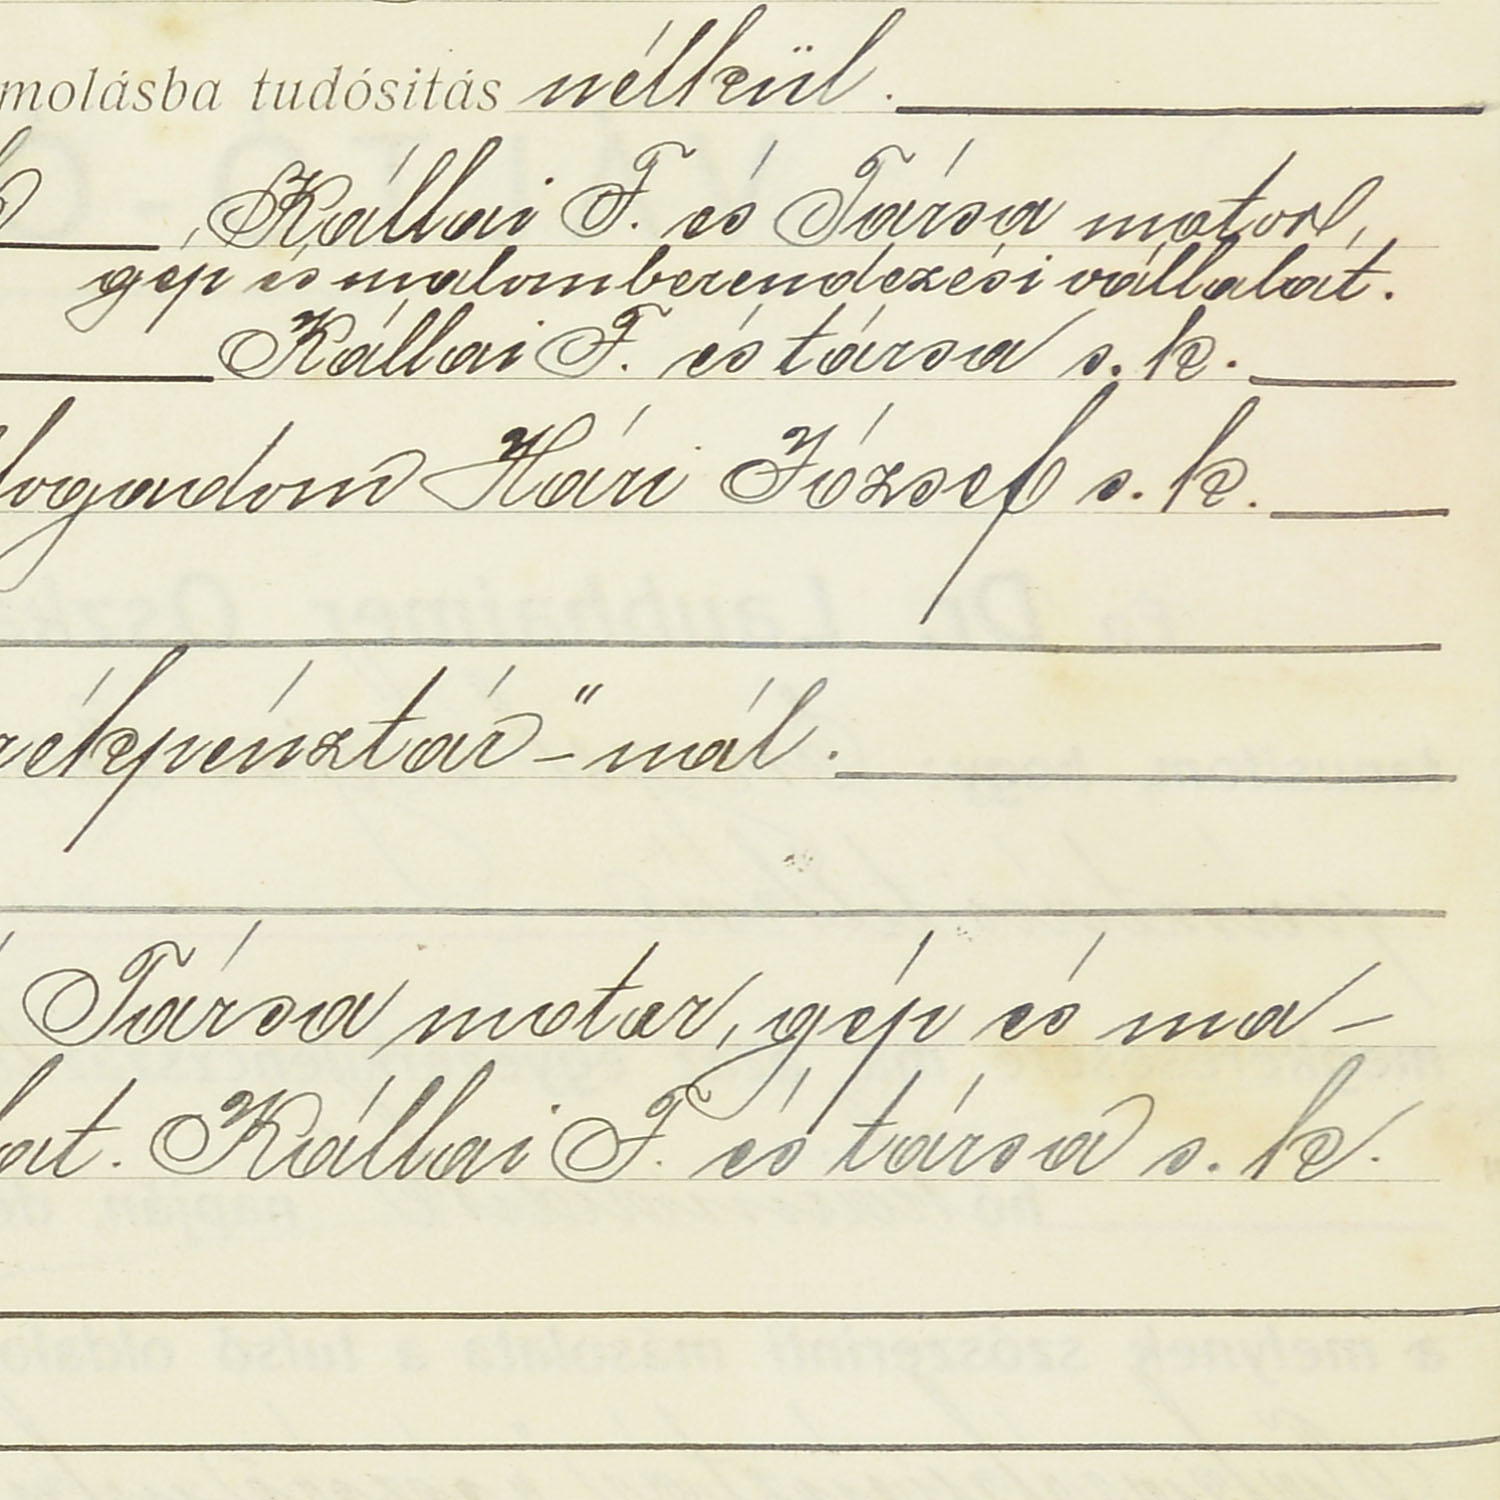 molásba tudósitás nélkül.
Kállai F. és Társa motor,
gép és malomberendezési vállalat.
Kállai F. és társa s. k.
fogadom Hári József s. k.
rékpénztár"-nál.
Társa motor, gép és ma-
lat. Kállai F. és társa s. k.